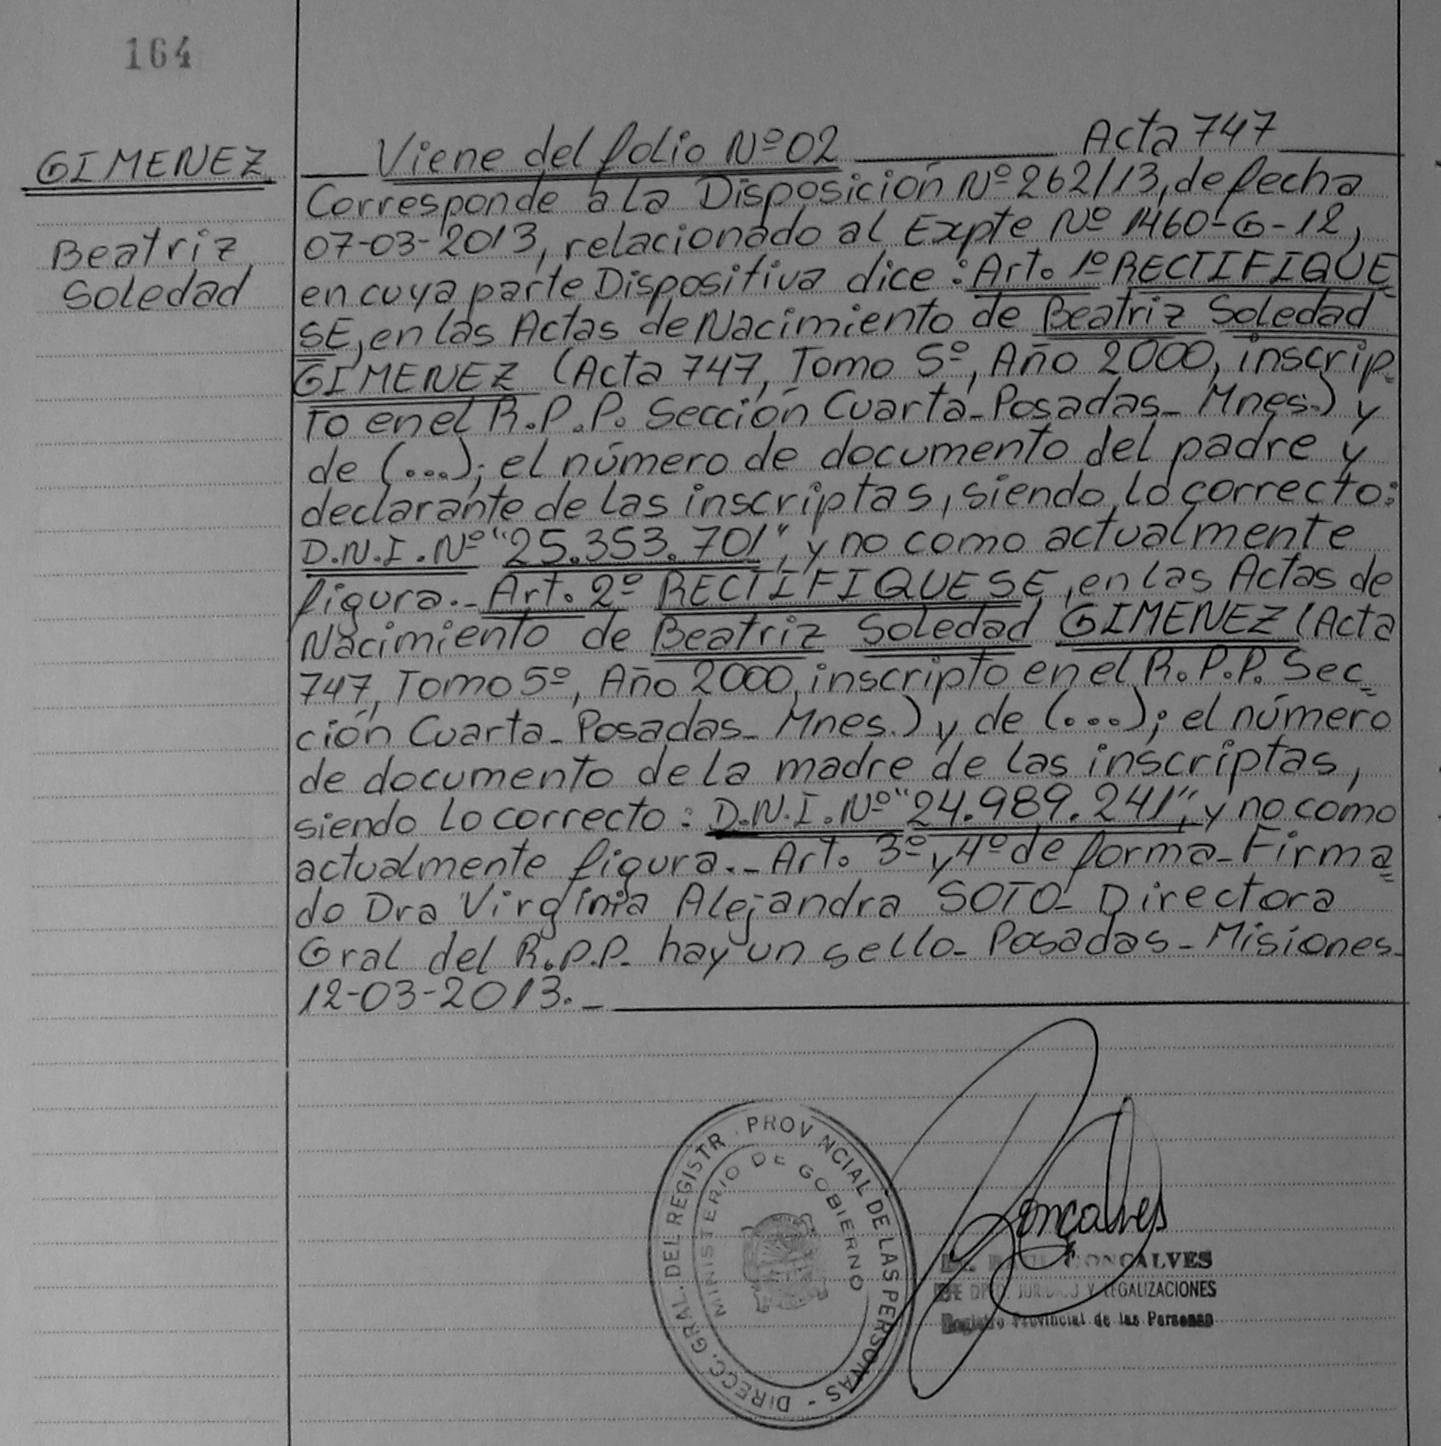 164
GIMENEZ
Beatriz
Soledad
Viene del folio Nº 02 Acta 747
Corresponde a la Disposición Nº 262/13, de fecha
07-03-2013, relacionado al Expte Nº 1460-G-12,
en cuya parte Dispositiva dice: Art. 1º RECTIFIQUE
SE, en las Actas de Nacimiento de Beatriz Soledad
GIMENEZ (Acta 747, Tomo 5º, Año 2000, inscrip-
to en el R.P.P. Sección Cuarta_Posadas_Mnes.) y
de (...); el número de documento del padre y
declarante de las inscriptas, siendo lo correcto:
D.N.I. Nº "25.353.701", y no como actualmente
figura._ Art. 2º RECTIFIQUESE, en las Actas de
Nacimiento de Beatriz Soledad GIMENEZ (Acta
747, Tomo 5º, Año 2000, inscripto en el R.P.P. Sec=
ción Cuarta_Posadas_Mnes.) y de (...); el número
de documento de la madre de las inscriptas,
siendo lo correcto: D.N.I. Nº "24.989.241", y no como
actualmente figura._ Art. 3º y 4º de forma_Firma=
do Dra Virginia Alejandra SOTO_Directora
Gral del R.P.P. hay un sello_ Posadas_Misiones_
12-03-2013._
DIRECC. GRAL. DEL REGISTR PROV NCIAL DE LAS PERSONAS -
MINISTERIO DE GOBIERNO
Gonçalves
GONÇALVES
Y LEGALIZACIONES
Registro Provincial de las Personas